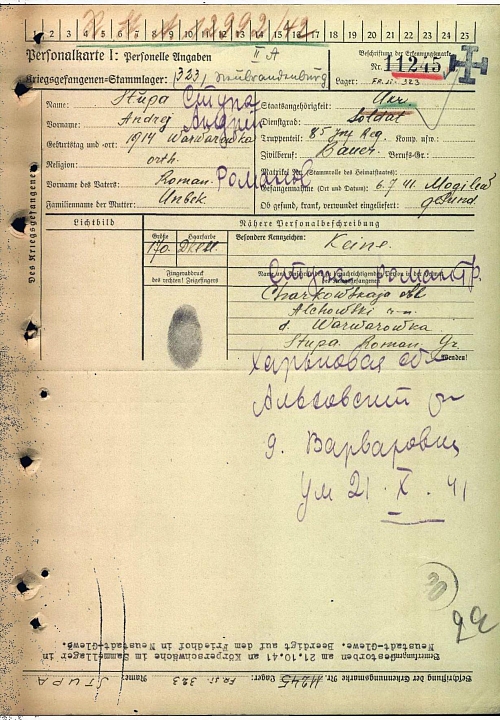 R M A 12992/42
1 2 3 4 5 6 7 8 9 10 11 12 13 14 15 16 17 18 19 20 21 22 23 24 25
Personalkarte I: Personelle Angaben
II A
Kriegsgefangenen-Stammlager: (323) Neubrandenburg
Beschriftung der Erkennungsmarke
Nr. 11245
Lager: Fr. st. 323
Des Kriegsgefangenen
Name: Stupa Ступа
Vorname: Andrej Андрей
Geburtstag und -ort: 1914 Warwarowka
Religion: orth.
Vorname des Vaters: Roman. Романов
Familienname der Mutter: Unbek.
Staatsangehörigkeit: Ukr.
Dienstgrad: Soldat
Truppenteil: 85 Inf Reg. Komp. usw.:
Zivilberuf: Bauer. Berufs-Gr.:
Matrikel Nr. (Stammrolle des Heimatstaates):
Gefangennahme (Ort und Datum): 6.7.41. Mogileв
Ob gesund, krank, verwundet eingeliefert: gesund.
Lichtbild
Nähere Personalbeschreibung
Größe Haarfarbe
170.
Besondere Kennzeichen: Keine.
Fingerabdruck
des rechten! Zeigefingers
Ступа Роман
Charkowskaja obl
Alchowski
d. Warwarowka
Stupa Roman Gr.
Wenden!
Харьковая обл
Альховский
д. Варваровка
ум 21. X. 41
30
Bemerkungen:
am 21.10.41 an Körperschwäche im Sammellager in
Neustadt-Glewe. Beerdigt auf dem Friedhof in Neustadt-Glewe.
Beschriftung der Erkennungsmarke Nr. 11245 Lager: Fr. st. 323 Name: STUPA